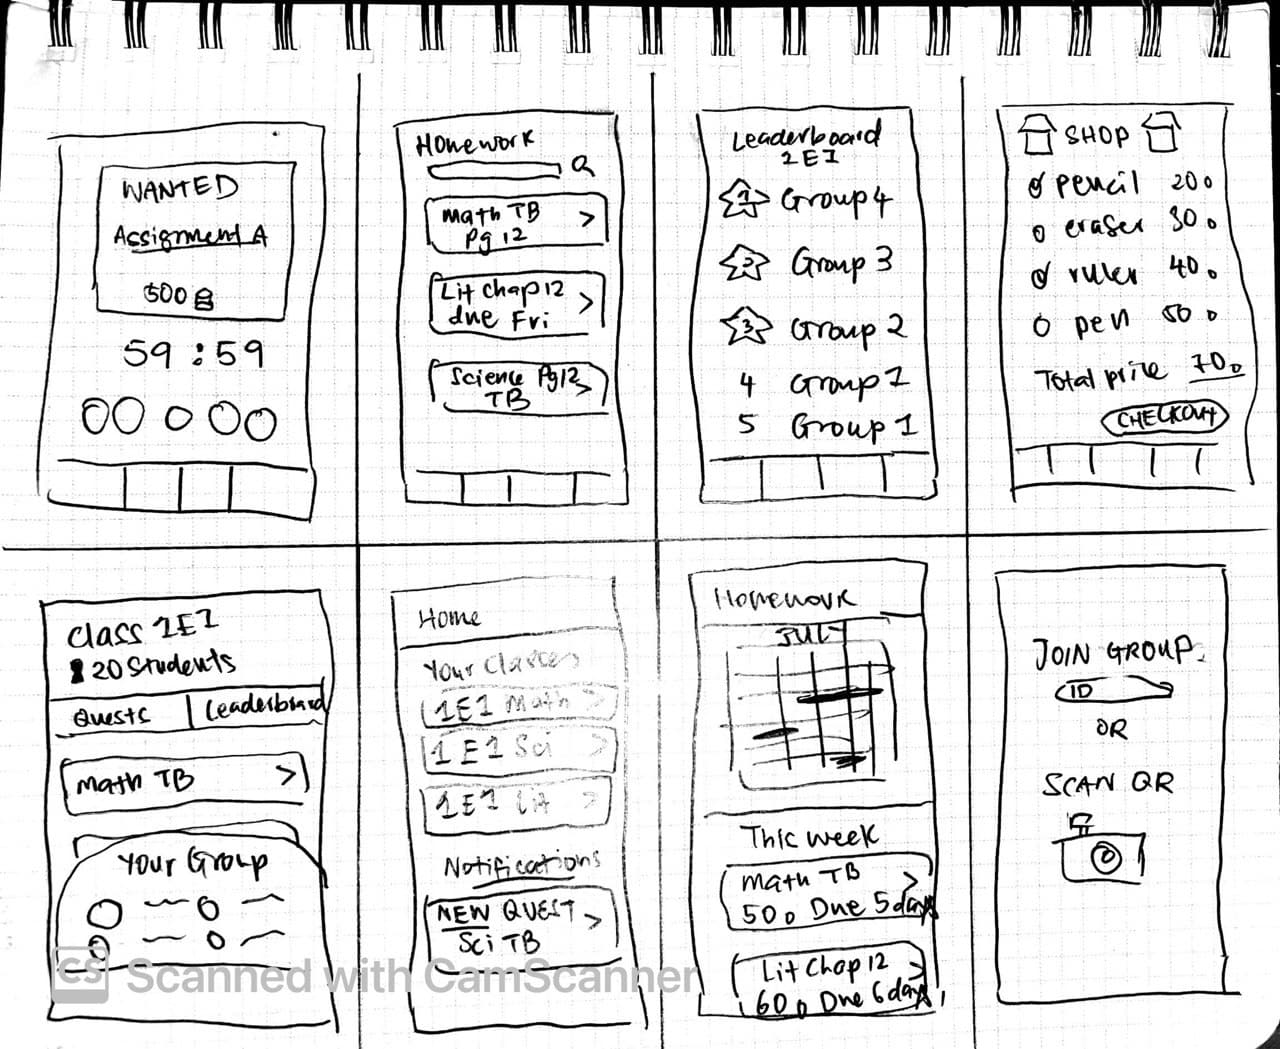 WANTED
Assignment A
500
59:59
Homework
Math TB
Pg 12
Lit Chap 12
due Fri
Science Pg12
TB
Leaderboard
1E1
1 Group 4
2 Group 3
3 Group 2
4 Group 1
5 Group 1
SHOP
pencil 20
eraser 30
ruler 40
pen 50
Total price 70
CHECKOUT
Class 1E1
20 Students
Quests Leaderboard
Math TB
Your Group
Home
Your Classes
1E1 Math
1E1 Sci
1E1 Lit
Notifications
NEW QUEST
Sci TB
Homework
JULY
This week
Math TB
50 Due 5days
Lit Chap 12
60 Due 6days
JOIN GROUP
ID
OR
SCAN QR
CS Scanned with CamScanner